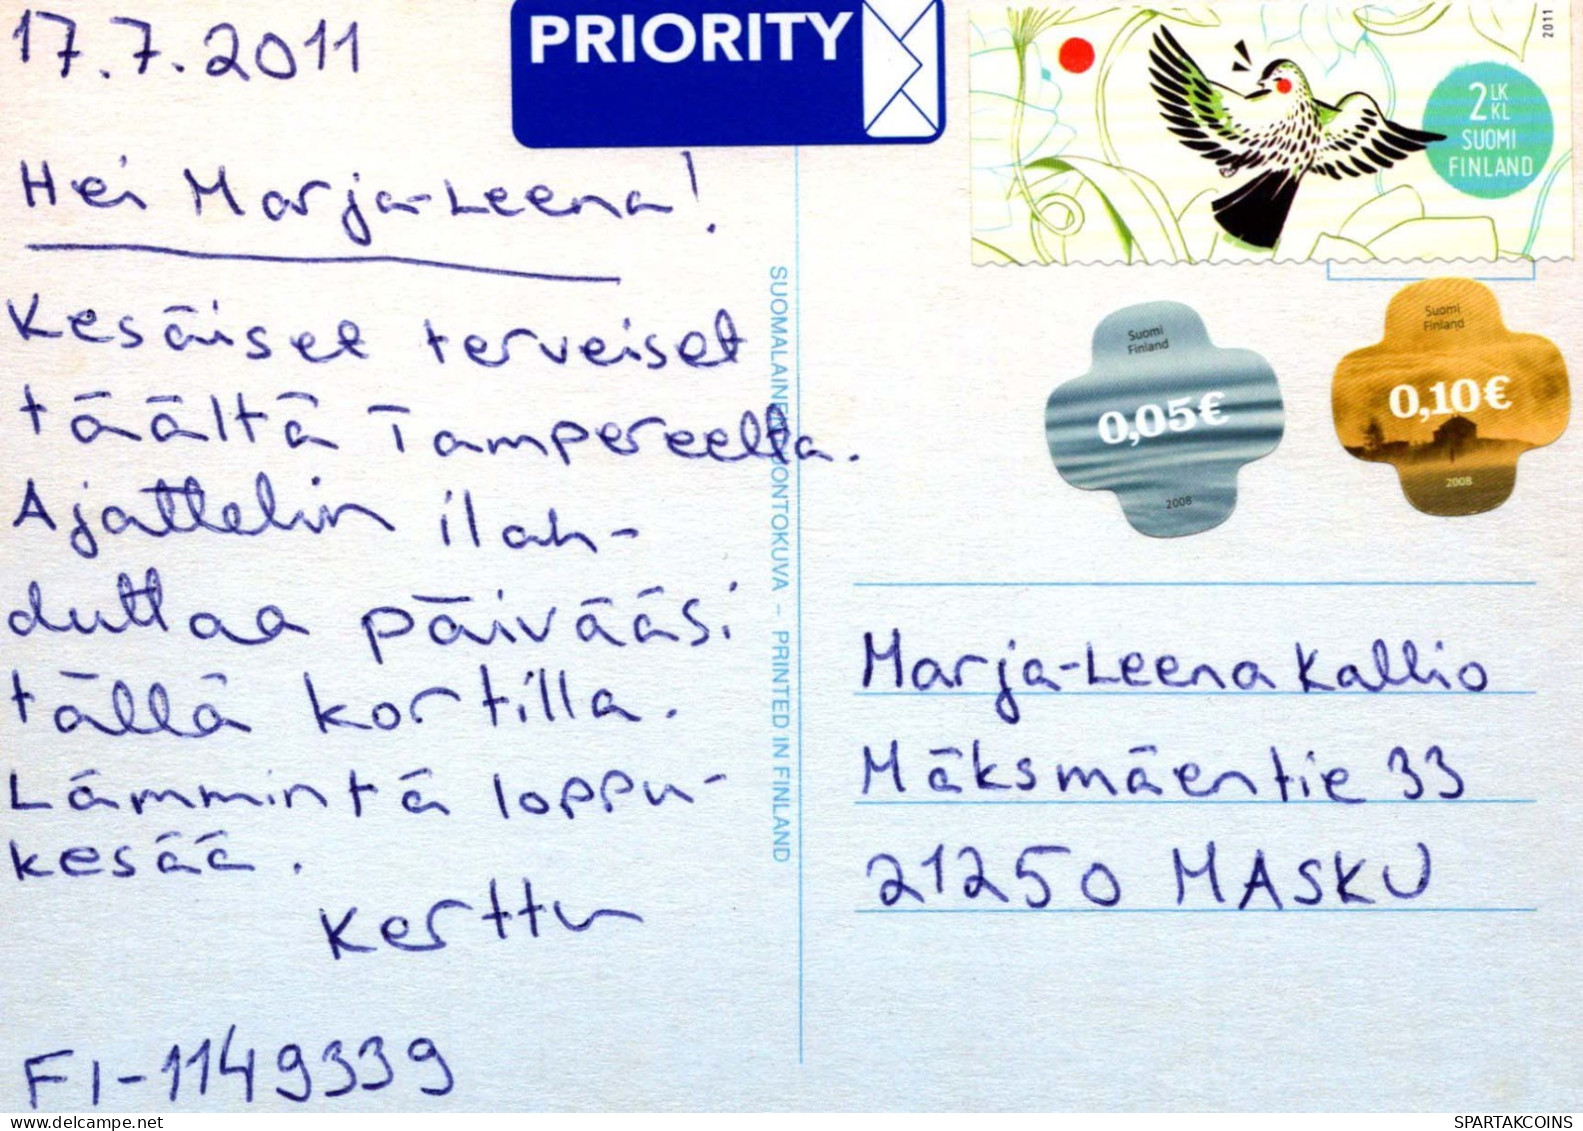 17.7.2011
Hei Marja-Leena!
Kesäiset terveiset
täältä Tampereelta.
Ajattelin ilah-
duttaa päivääsi
tällä kortilla.
Lämmintä loppu-
kesää.
Kerttu
FI-1149339
PRIORITY
2011
2 LK
KL
SUOMI
FINLAND
Suomi
Finland
0,05€
2008
Suomi
Finland
0,10€
2008
SUOMALAINEN LUONTOKUVA – PRINTED IN FINLAND
Marja-Leena Kallio
Mäksmäentie 33
21250 MASKU
SPARTAKCOINS